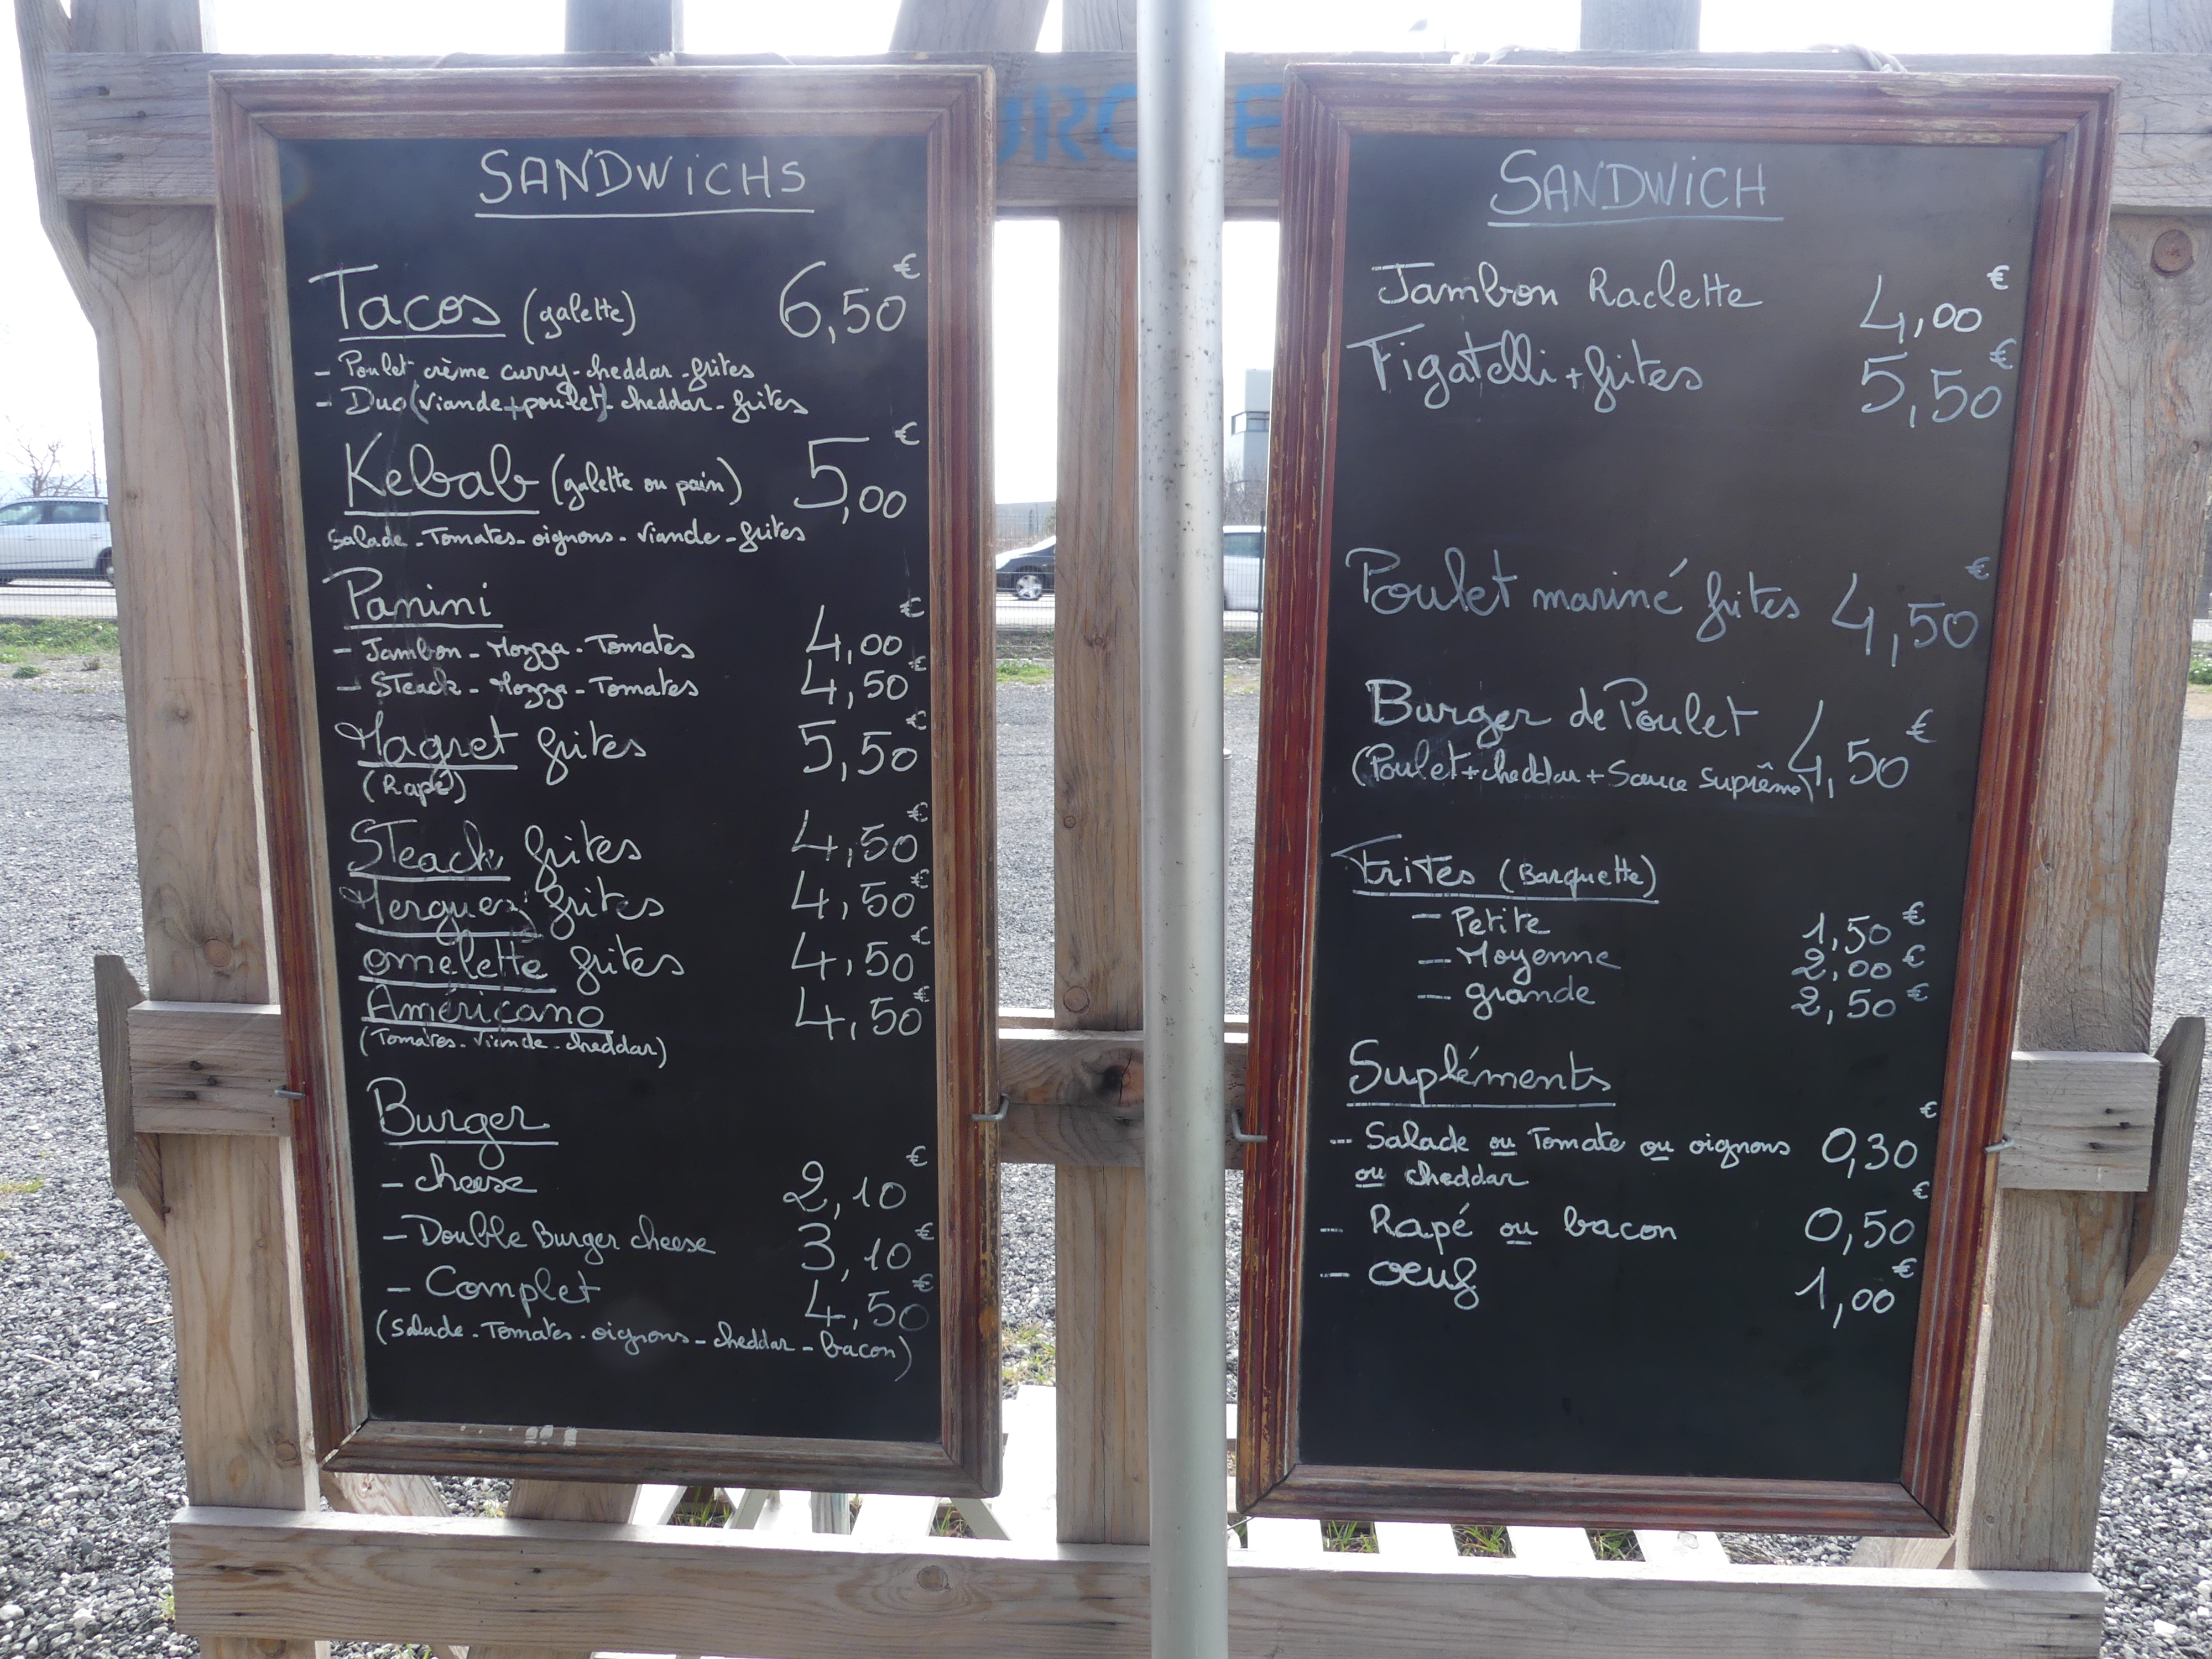 SANDWiCHS
Tacos (galette) 6,50 €
- Poulet crème curry-cheddar-frites
- Duo (viande+poulet)-cheddar-frites
Kebab (galette ou pain) 5,00 €
Salade-Tomates-oignons-viande-frites
Panini
- Jambon-Mozza-Tomates 4,00 €
- STeack-Mozza-Tomates 4,50 €
Magret frites 5,50 €
(Rapé)
STeack frites 4,50 €
Merguez frites 4,50 €
omelette frites 4,50 €
Américano 4,50 €
(Tomates-viande-cheddar)
Burger
- cheese 2,10 €
- Double Burger cheese 3,10 €
- Complet 4,50 €
(Salade-Tomates-oignons-cheddar-bacon)
SANDWiCH
Jambon Raclette 4,00 €
Figatelli+frites 5,50 €
Poulet mariné frites 4,50 €
Burger de Poulet 4,50 €
(Poulet+cheddar+Sauce suprême)
Frites (Barquette)
- Petite 1,50 €
- Moyenne 2,00 €
- grande 2,50 €
Supléments
- Salade ou Tomate ou oignons 0,30 €
ou cheddar
- Rapé ou bacon 0,50 €
- oeuf 1,00 €